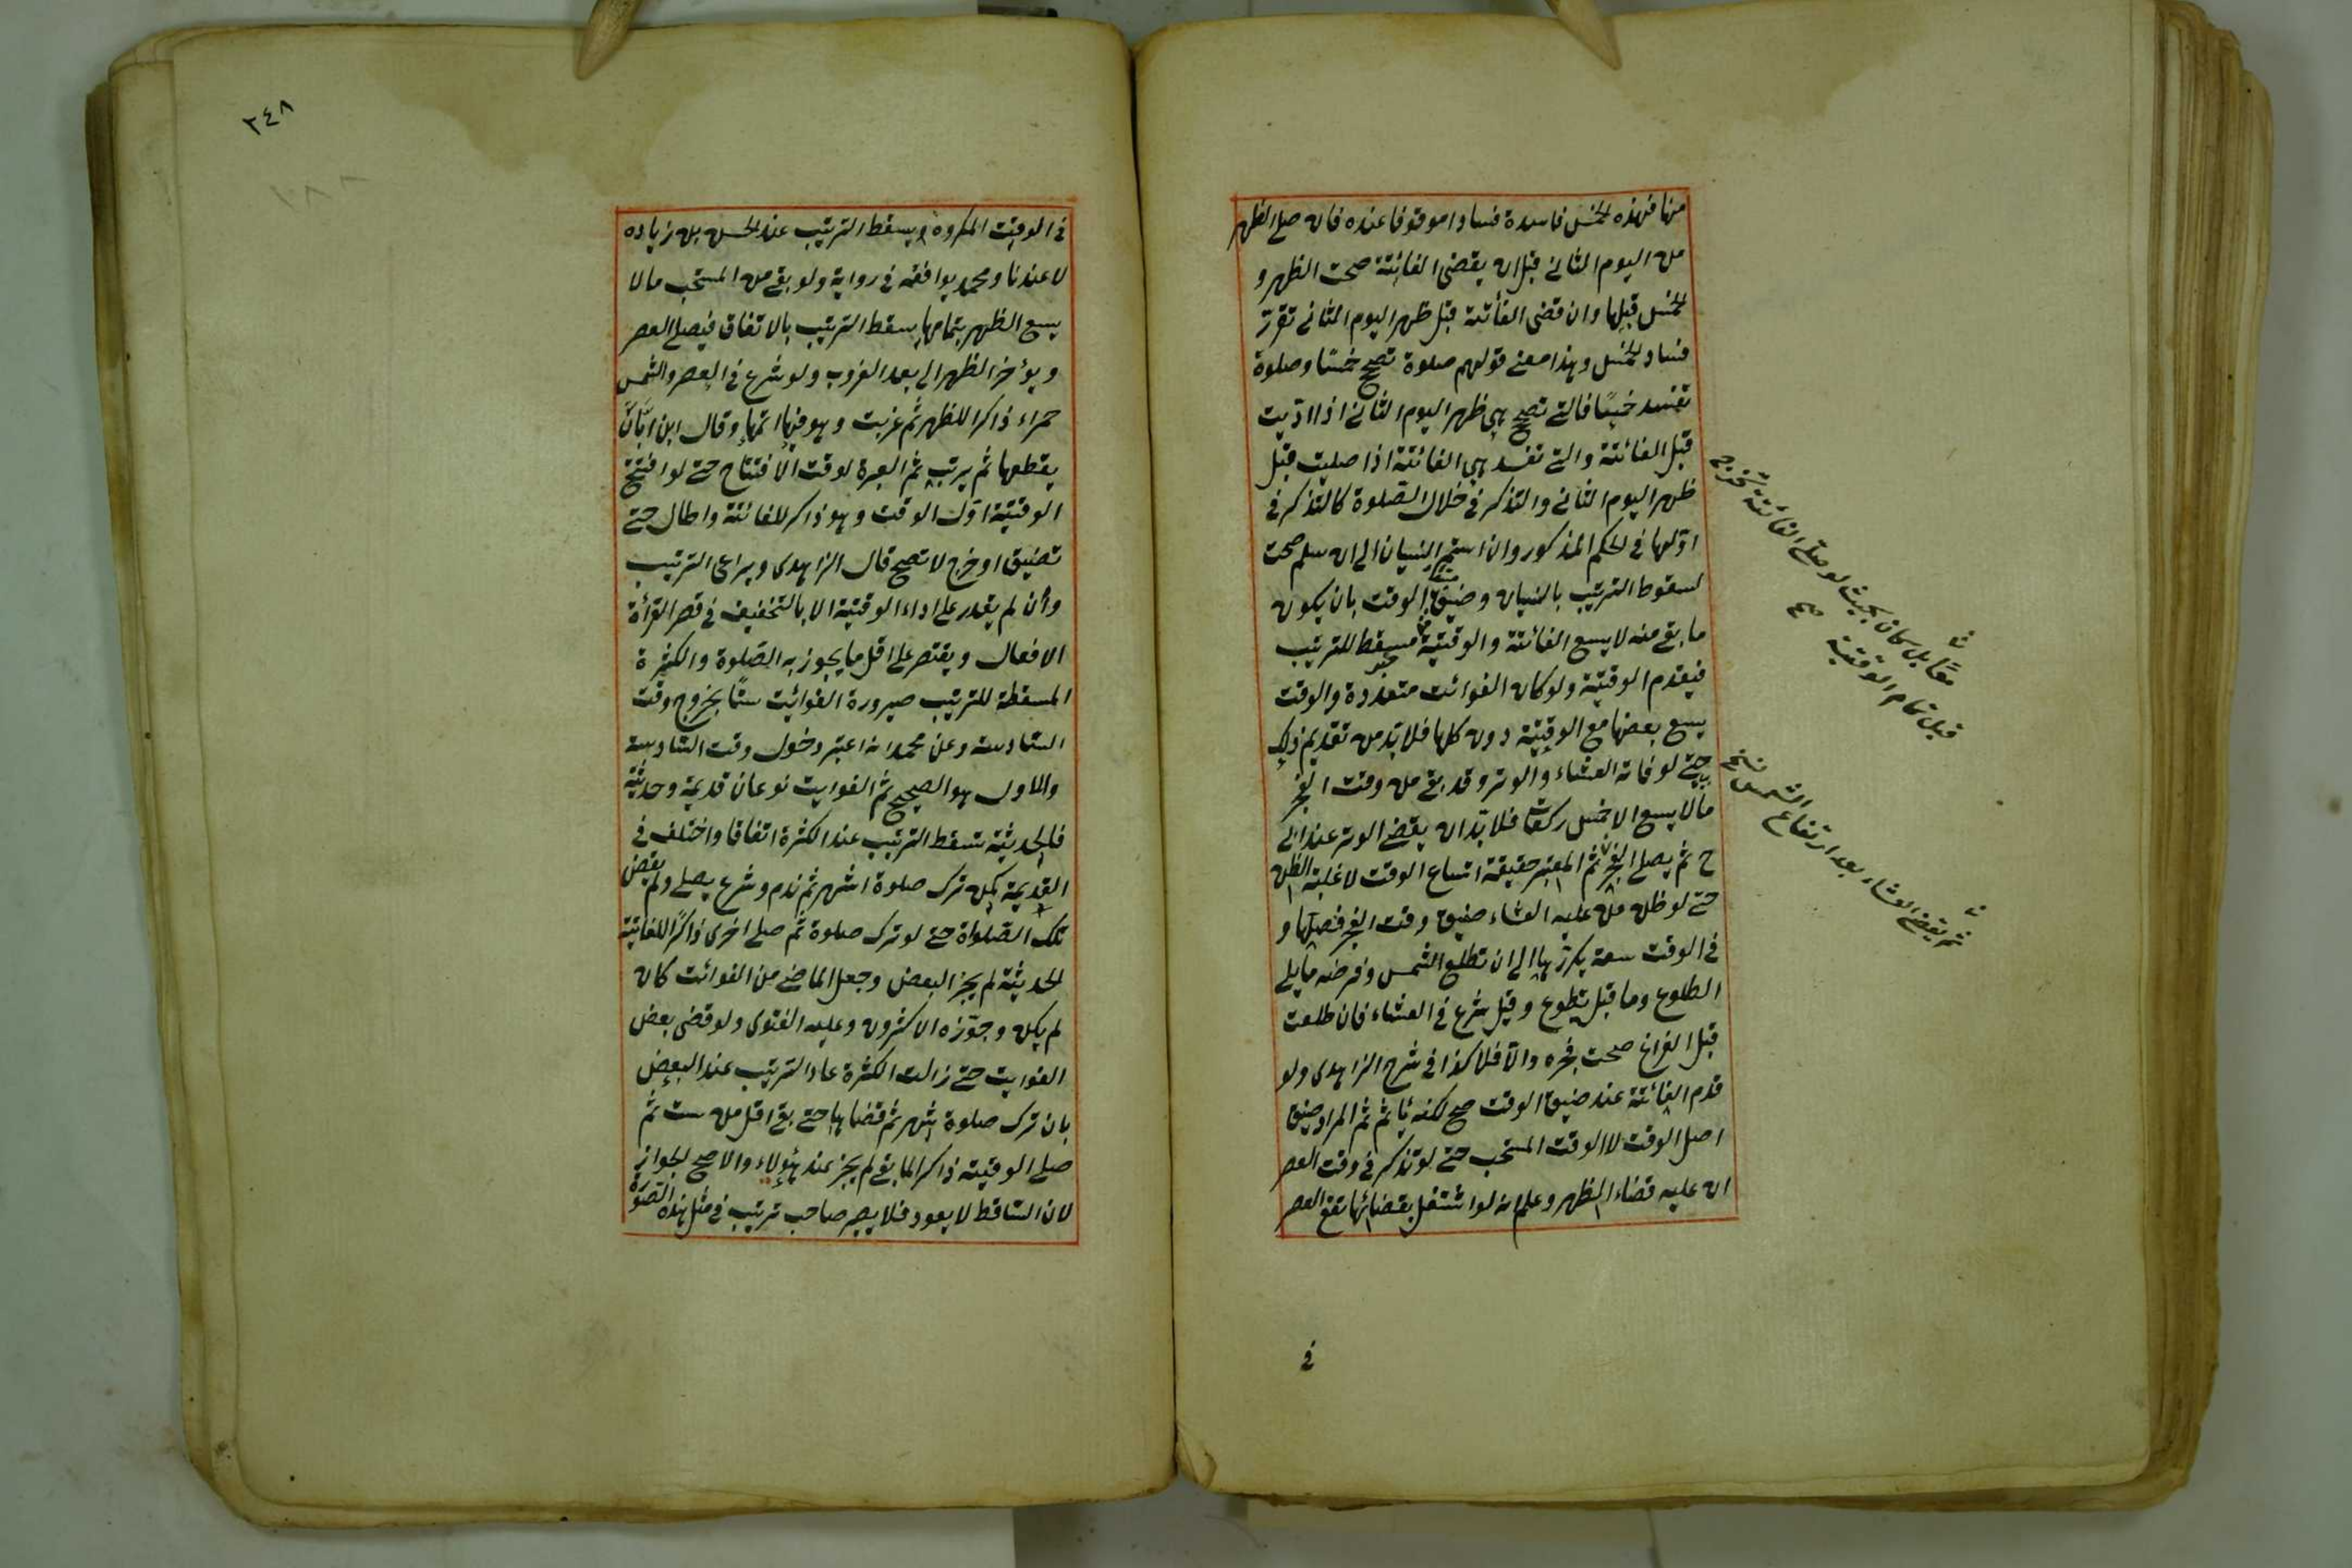 منها فهذه الخمس فاسدة فسادا موقوفا عنده فان صلى الظهر
من اليوم الثاني قبل ان يقضى الفائتة صحت الظهر و
الخمس قبلها وان قضى الفائتة قبل ظهر اليوم الثاني تقرر
فساد الخمس وهذا معنى قولهم صلوة تصحح خمسًا وصلوة
تفسد خمسًا فالتي تصحح هي ظهر اليوم الثاني اذا ادّيت
قبل الفائتة والتي تفسد هي الفائتة اذا صليت قبل
ظهر اليوم الثاني والتذكر في خلال الصّلوة كالتذكر في
اوّلها في الحكم المذكور وان استمر النسيان الى ان سلم صحت
لسقوط الترتيب بالنسيان وضيق الوقت بان يكون
ما بقي منه لا يسع الفائتة والوقتية مسقط للترتيب
فيقدم الوقتية ولو كان الفوائت متعددة والوقت
يسع بعضها مع الوقتية دون كلها فلا بدّ من تقديم ذلك
حتى لو فاته العشاء والوتر وقد بقي من وقت الفجر
ما لا يسع الا خمس ركعات فلا بدّ ان يقضي الوتر عند ابي
ح ثم يصلي الفجر ثم المعتبر حقيقة اتساع الوقت لا غلبة الظن
حتى لو ظن من عليه العشاء ضيق وقت الفجر فصلّها و
في الوقت سعة يكررها الى ان تطلع الشمس وفرضه ما يلي
الطلوع وما قبل تطوع وقيل شرع في العشاء فان طلعت
قبل الفراغ صحت فجره والّا فلا كذا في شرح الزاهدى ولو
قدم الفائتة عند ضيق الوقت صح لكنه يأثم ثم المراد ضيق
اصل الوقت لا الوقت المستحب حتى لو تذكر في وقت العصر
ان عليه قضاء الظهر وعلم انه لو اشتغل بقضائها تقع العصر
في
معًا بل كان بحيث لو صلى الفائتة تخرج
قبل تمام الوقتية صح
ثم يقضي العشاء بعد ارتفاع الشمس نسخه
٣٤٨
في الوقت المكروه ويسقط الترتيب عند الحسن بن زياده
لا عندنا ومحمد يوافقه في رواية ولو بقي من المستحب ما لا
يسع الظهر بتمامها يسقط الترتيب بالاتفاق فيصلي العصر
ويؤخر الظهر الى بعد الغروب ولو شرع في العصر والشمس
حمراء ذاكرا للظهر ثم غربت وهو فيها اتمّها وقال ابن ابّان
يقطعها ثم يرتب ثم العبرة لوقت الافتتاح حتى لو افتتح
الوقتية اوّل الوقت وهو ذاكر للفائتة واطال حتى
تضيق او خرج لا تصح قال الزاهدى ويراعى الترتيب
وان لم يقدر على اداء الوقتية الا بالتخفيف في قصر القرأة
الافعال ويقتصر على اقل ما يجوز به الصّلوة والكثرة
المسقطة للترتيب صيرورة الفوائت ستًّا بخروج وقت
السّادسة وعن محمد انه اعتبر دخول وقت السّادسة
والاول هو الصحيح ثم الفوايت نوعان قديمة وحديثة
فالحديثة تسقط الترتيب عند الكثرة اتفاقا واختلف في
القديمة كمن ترك صلوة اشهر ثم ندم وشرع يصلي ولم يقض
تلك الصّلواة حتى لو ترك صلوة ثم صلى اخرى ذاكرًا للفائتة
الحديثة لم يجز البعض وجعل الماضي من الفوائت كان
لم يكن وجوّزه الاكثرون وعليه الفتوى ولو قضى بعض
الفوايت حتى زالت الكثرة عاد الترتيب عند البعض
بان ترك صلوة شهر ثم قضاها حتى بقي اقل من ست ثم
صلى الوقتية ذاكرا لما بقي لم يجز عند هؤلاء والاصح الجواز
لان السّاقط لا يعود فلا يصير صاحب ترتيب في مثل هذه الصّورة